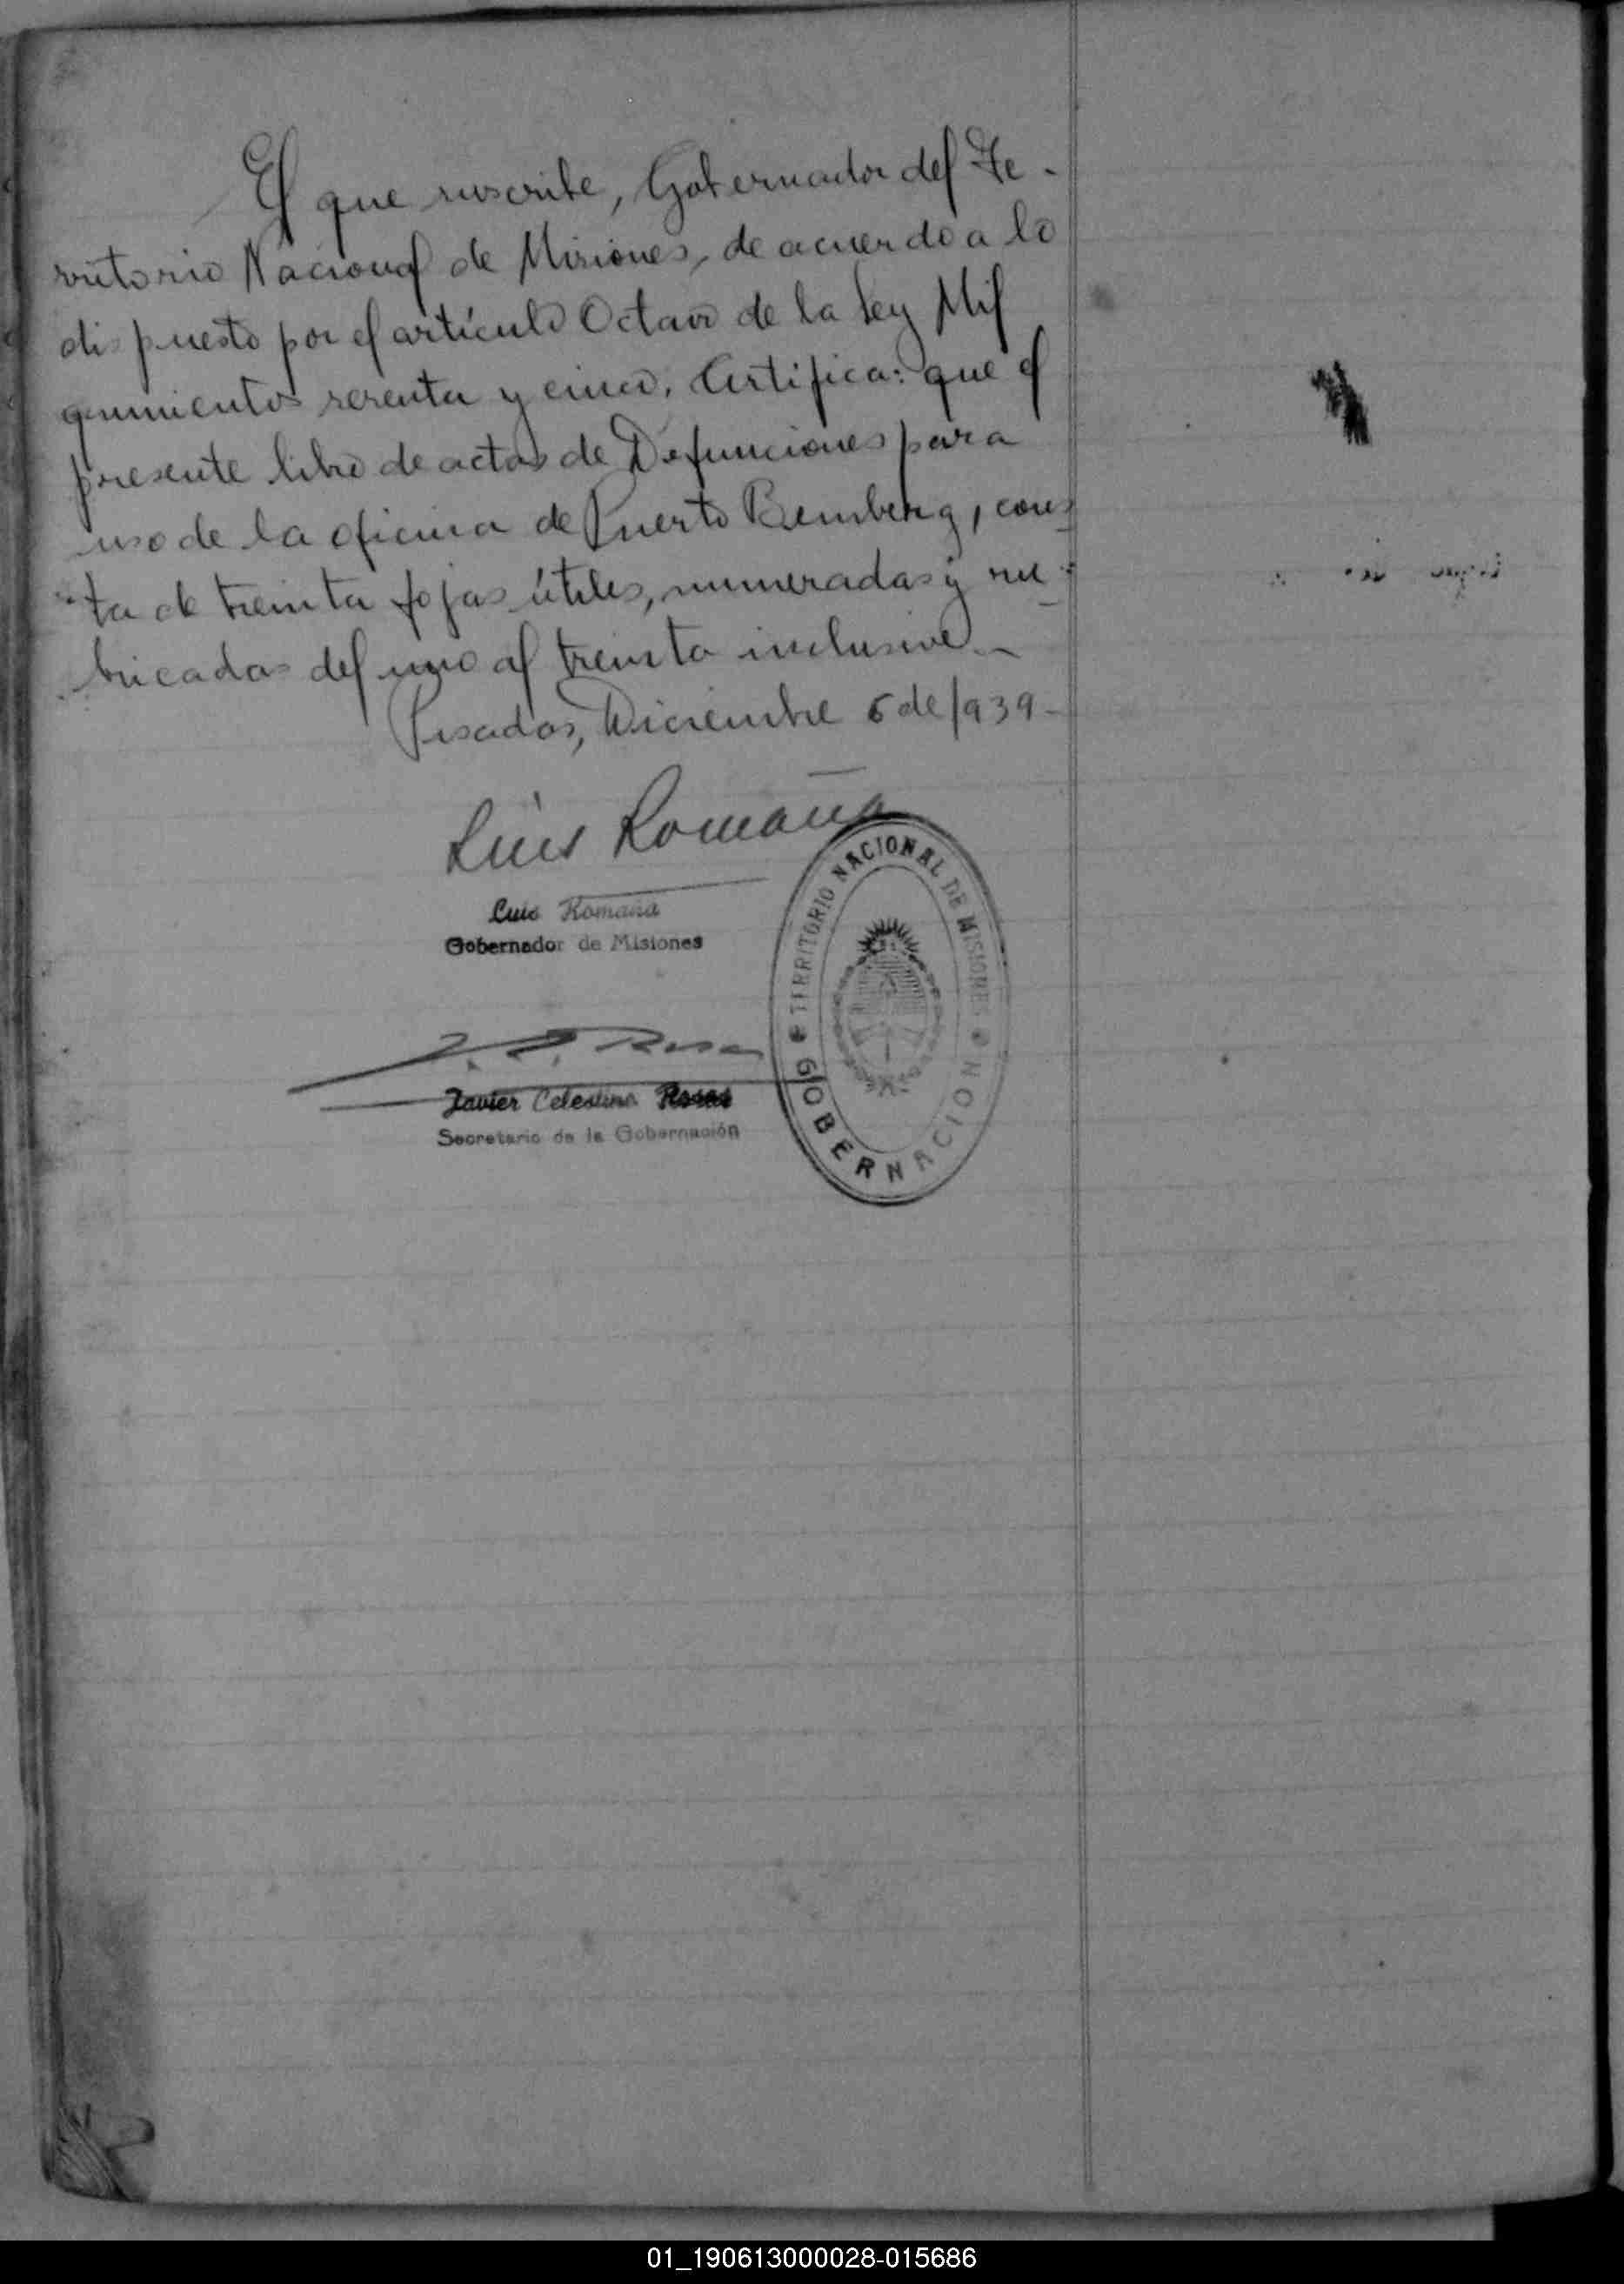 El que suscribe, Gobernador del Te-
rritorio Nacional de Misiones, de acuerdo a lo
dispuesto por el artículo Octavo de la Ley Mil
quinientos sesenta y cinco. Certifica: que el
presente libro de actas de Defunciones para
uso de la oficina de Puerto Bemberg, cons
ta de treinta fojas útiles, numeradas y ru-
bricadas del uno al treinta inclusive.-
Posadas, Diciembre 6 de 1939-
Luis Romaña
Luis Romaña
Gobernador de Misiones
TERRITORIO NACIONAL DE MISIONES
GOBERNACION
Javier Celestino Rosas
Secretario de la Gobernación
01_190613000028-015686